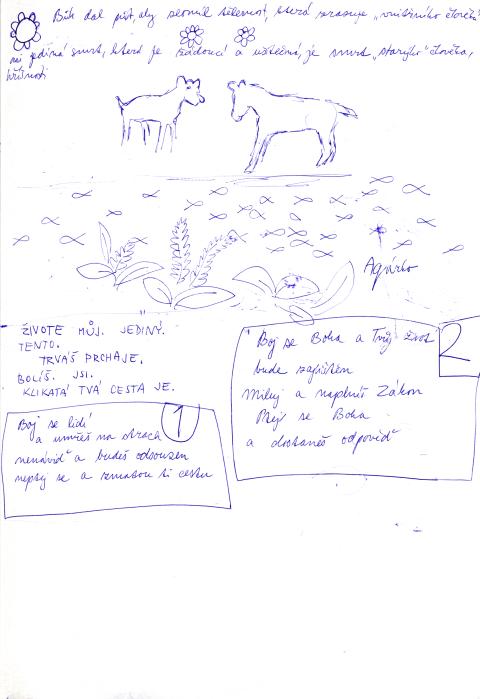 Bůh dal půst, aby zlomil tělesnost, která zraňuje „vnitřního člověka“
ni jediná smrt, která je žádoucí a užitečná, je smrt „starýho“ člověka,
hříšnosti
Agnárko
ŽIVOTE MŮJ. JEDINÝ.
TENTO.
TRVÁŠ PRCHAJE.
BOLÍŠ. JSI.
KLIKATÁ TVÁ CESTA JE.
1
Boj se lidí
a umřeš na strach
nenáviď a budeš odsouzen
neptej se a zmatou ti cestu
2
Boj se Boha a Tvůj život
bude zajištěn
Miluj a naplníš Zákon
se Boha
a dostaneš odpověď